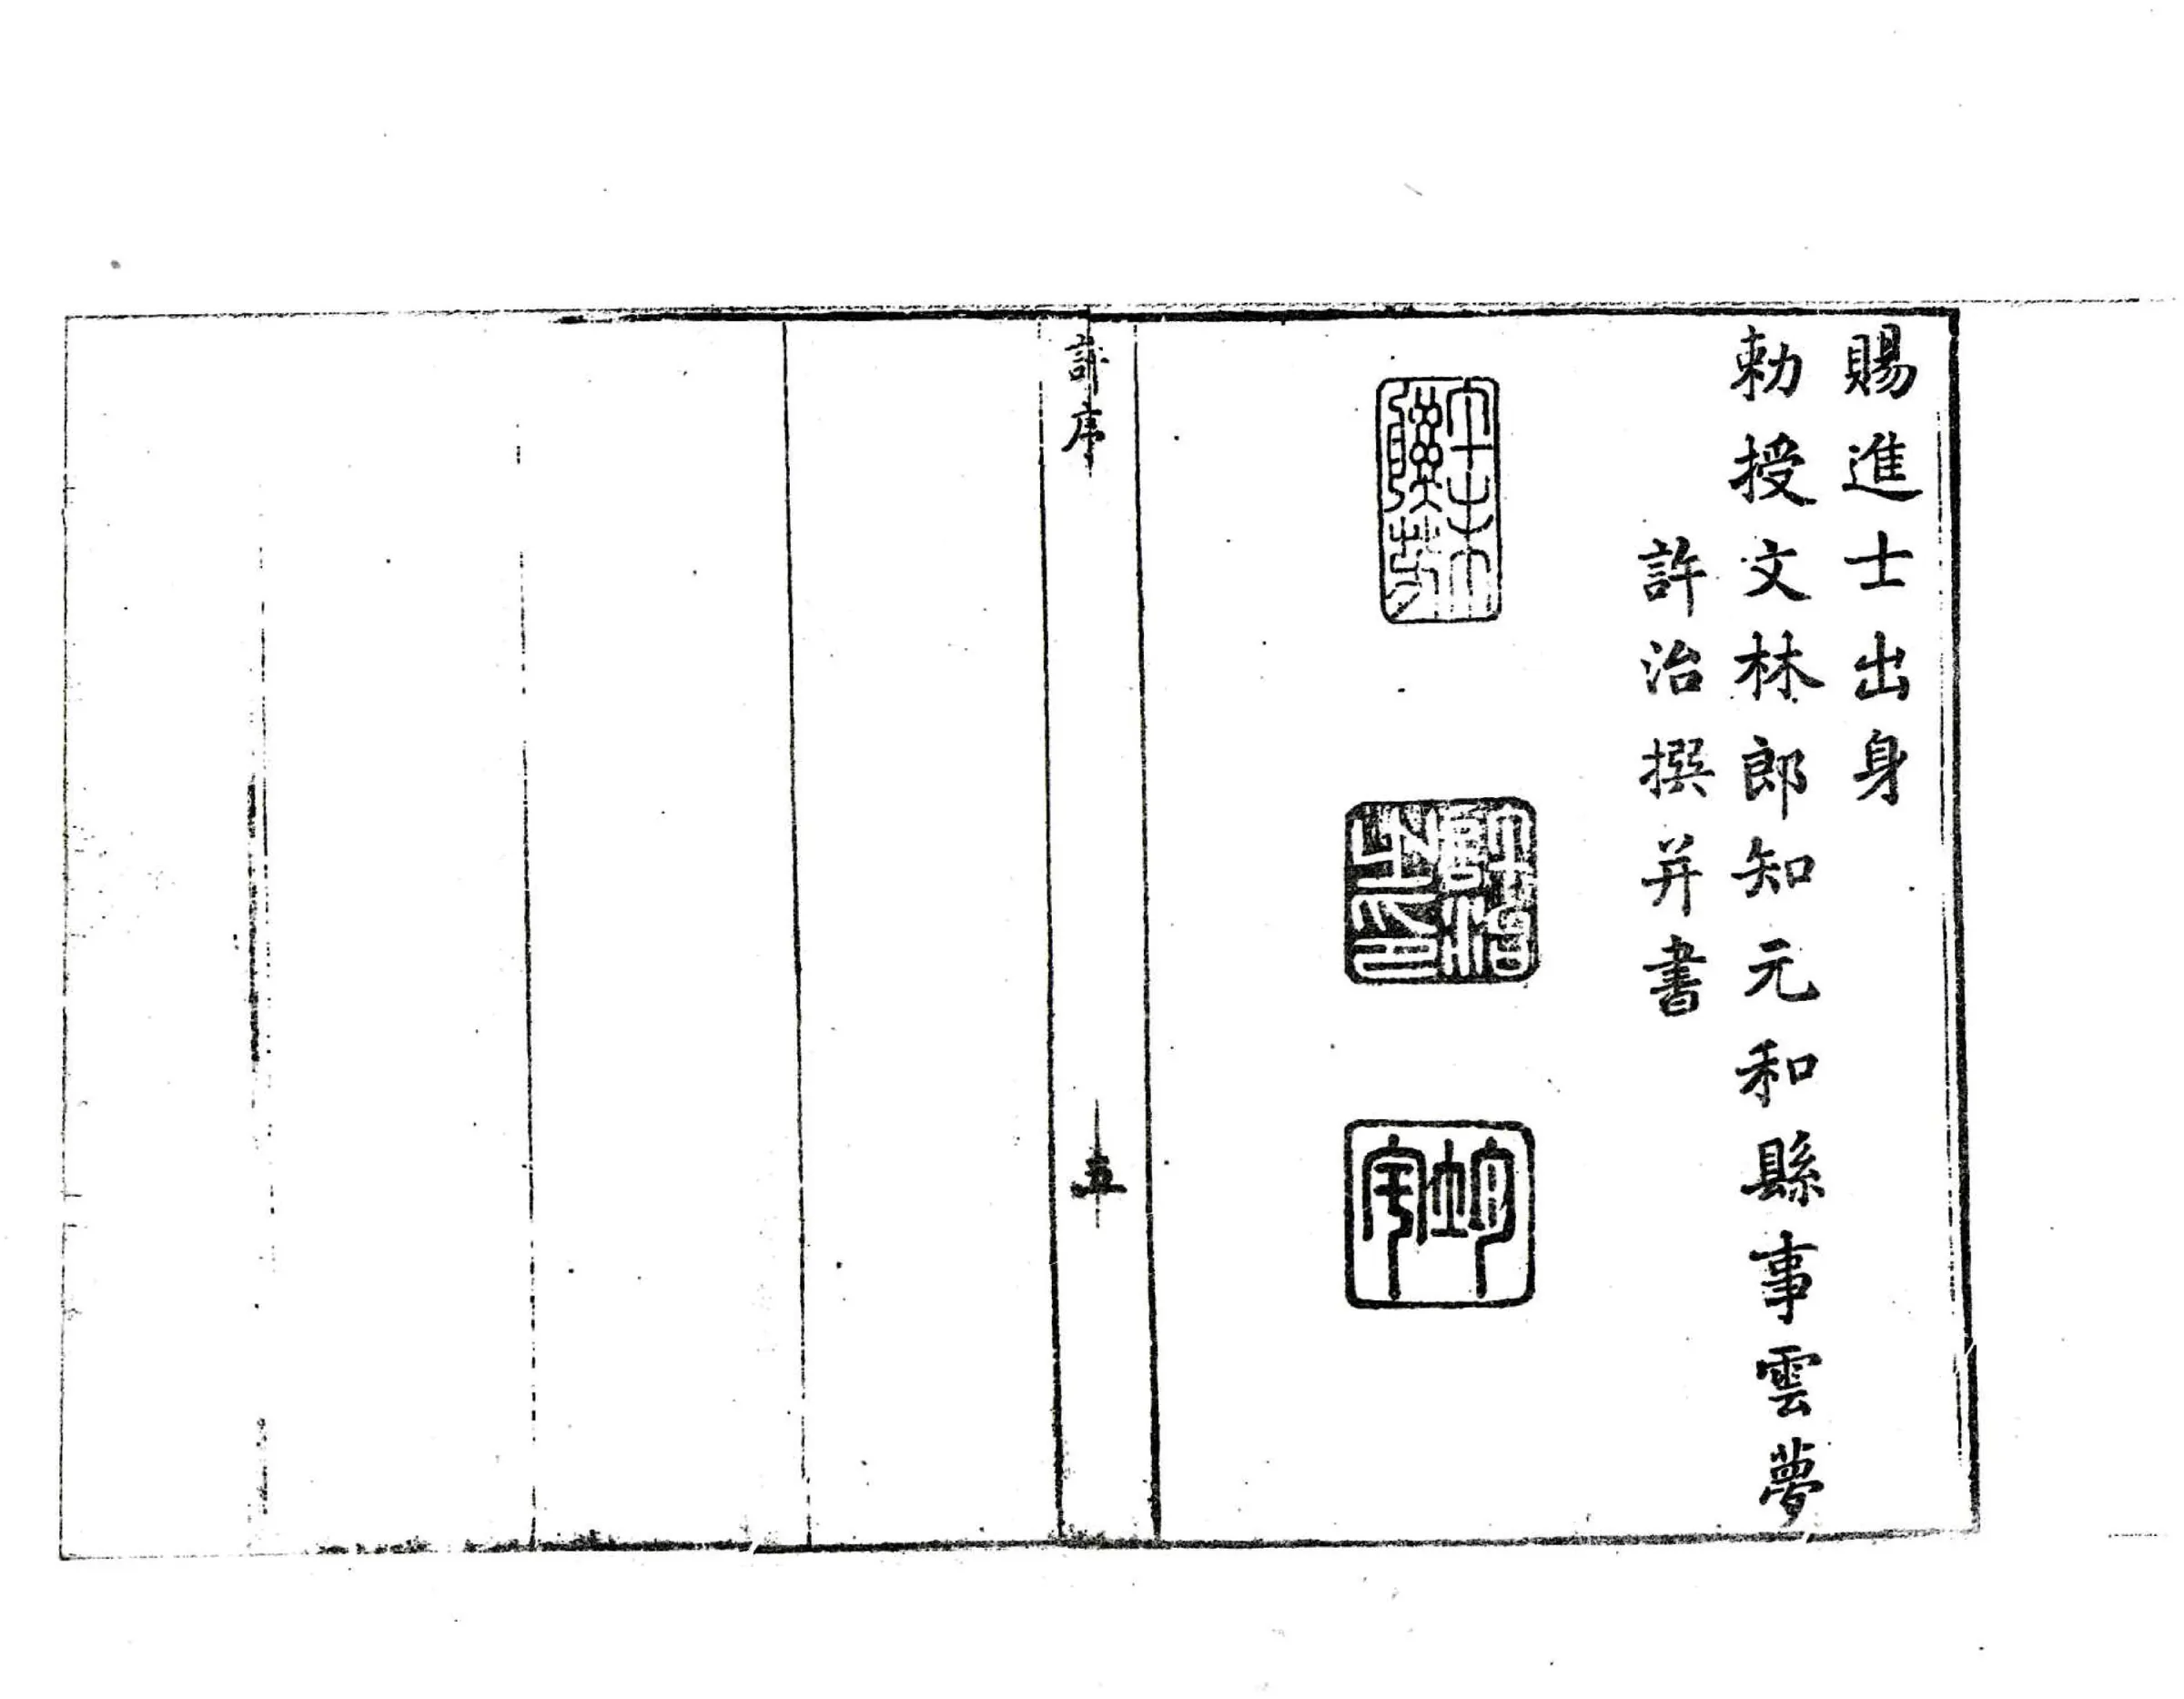 賜進士出身
勅授文林郎知元和縣事雲夢
許治撰并書
許治之印
許序
五